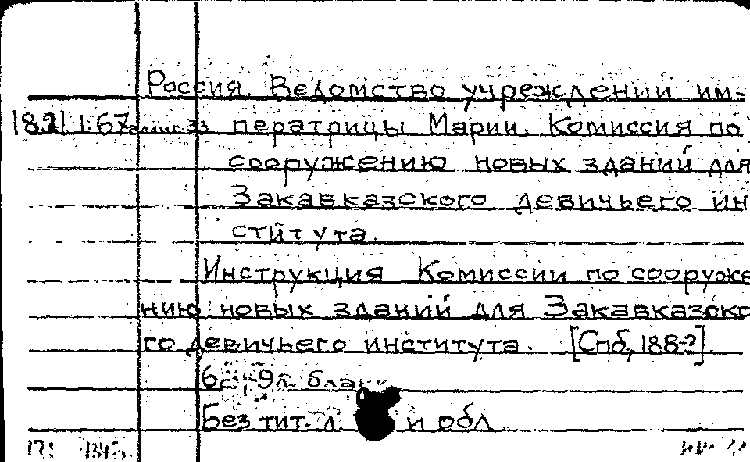 Россия. Ведомство учреждений им-
18.21.1.67 ператрицы Марии. Комиссия по
сооружению новых зданий для
Закавказского девичьего ин
ститута.
Инструкция Комиссии по сооруже
нию новых зданий для Закавказско
го девичьего института. [Спб, 188-?]
6с., 9л. бланк
Без тит. л. и обл